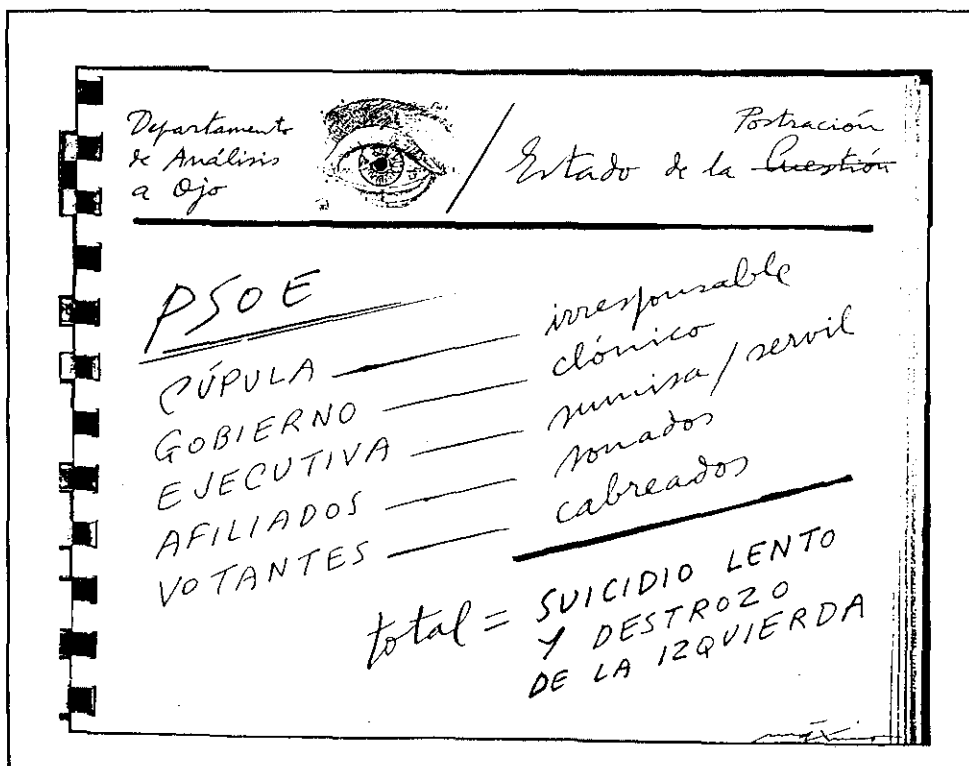 Departamento
de Análisis
a Ojo
Postración
Estado de la Cuestión
PSOE
CÚPULA irresponsable
GOBIERNO clónico
EJECUTIVA sumisa/servil
AFILIADOS sonados
VOTANTES cabreados
total = SUICIDIO LENTO
Y DESTROZO
DE LA IZQUIERDA
máximo